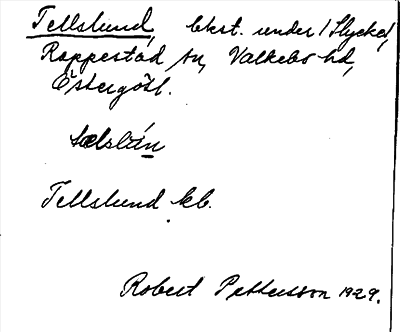 Tellslund, bkst. under 1 Slycke,
Rappestad sn, Valkebo hd,
Östergötl.
tælslún
Tellslund kb.
Robert Pettersson 1929.